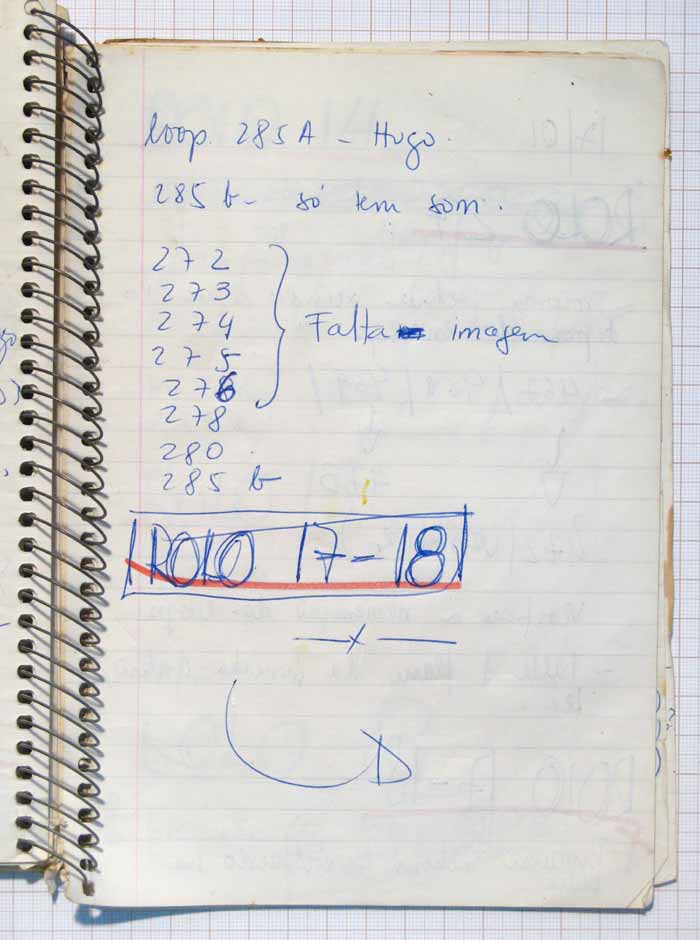 loop. 285 A - Hugo.
285 b - só tem som.
272
273
274
275
276
Falta imagem
278
280
285 b
ROLO 17-18